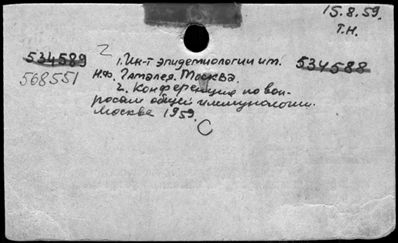 15.8.59.
Т.Н.
534589
568551
1. Ин-т эпидемиологии им.
Н.Ф. Гамалея. Москва.
534588
2. Конференция по воп-
росам общей иммунологии.
Москва 1959.
С